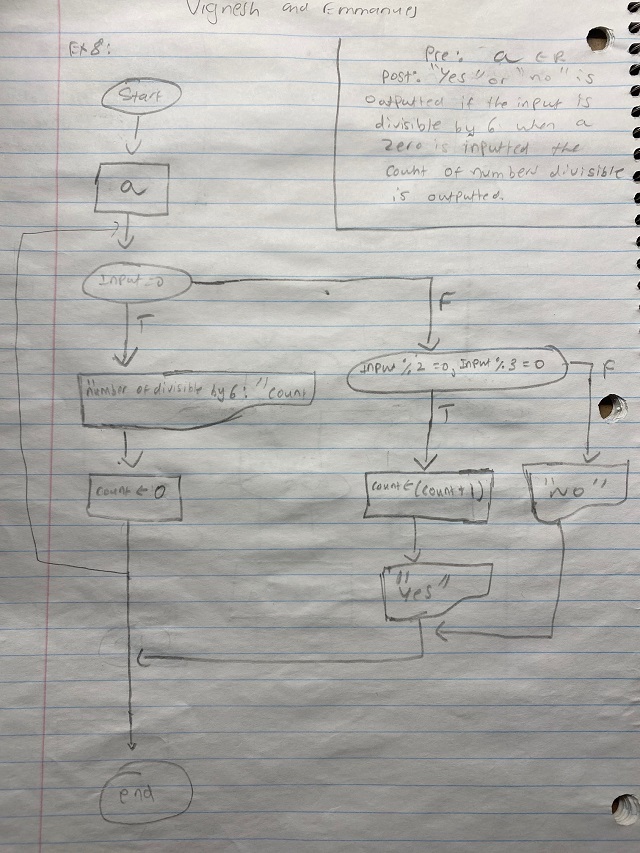 Vignesh and Emmanuel
Ex 8:
Pre: a ∈ R
Post: "Yes" or "no" is
outputted if the input is
divisible by 6 when a
zero is inputted the
count of numbers divisible
is outputted.
Start
a
Input = 0
F
T
Input % 2 = 0, Input % 3 = 0
F
"number of divisible by 6: " count
T
count ← 0
count ← (count + 1)
"No"
"Yes"
end